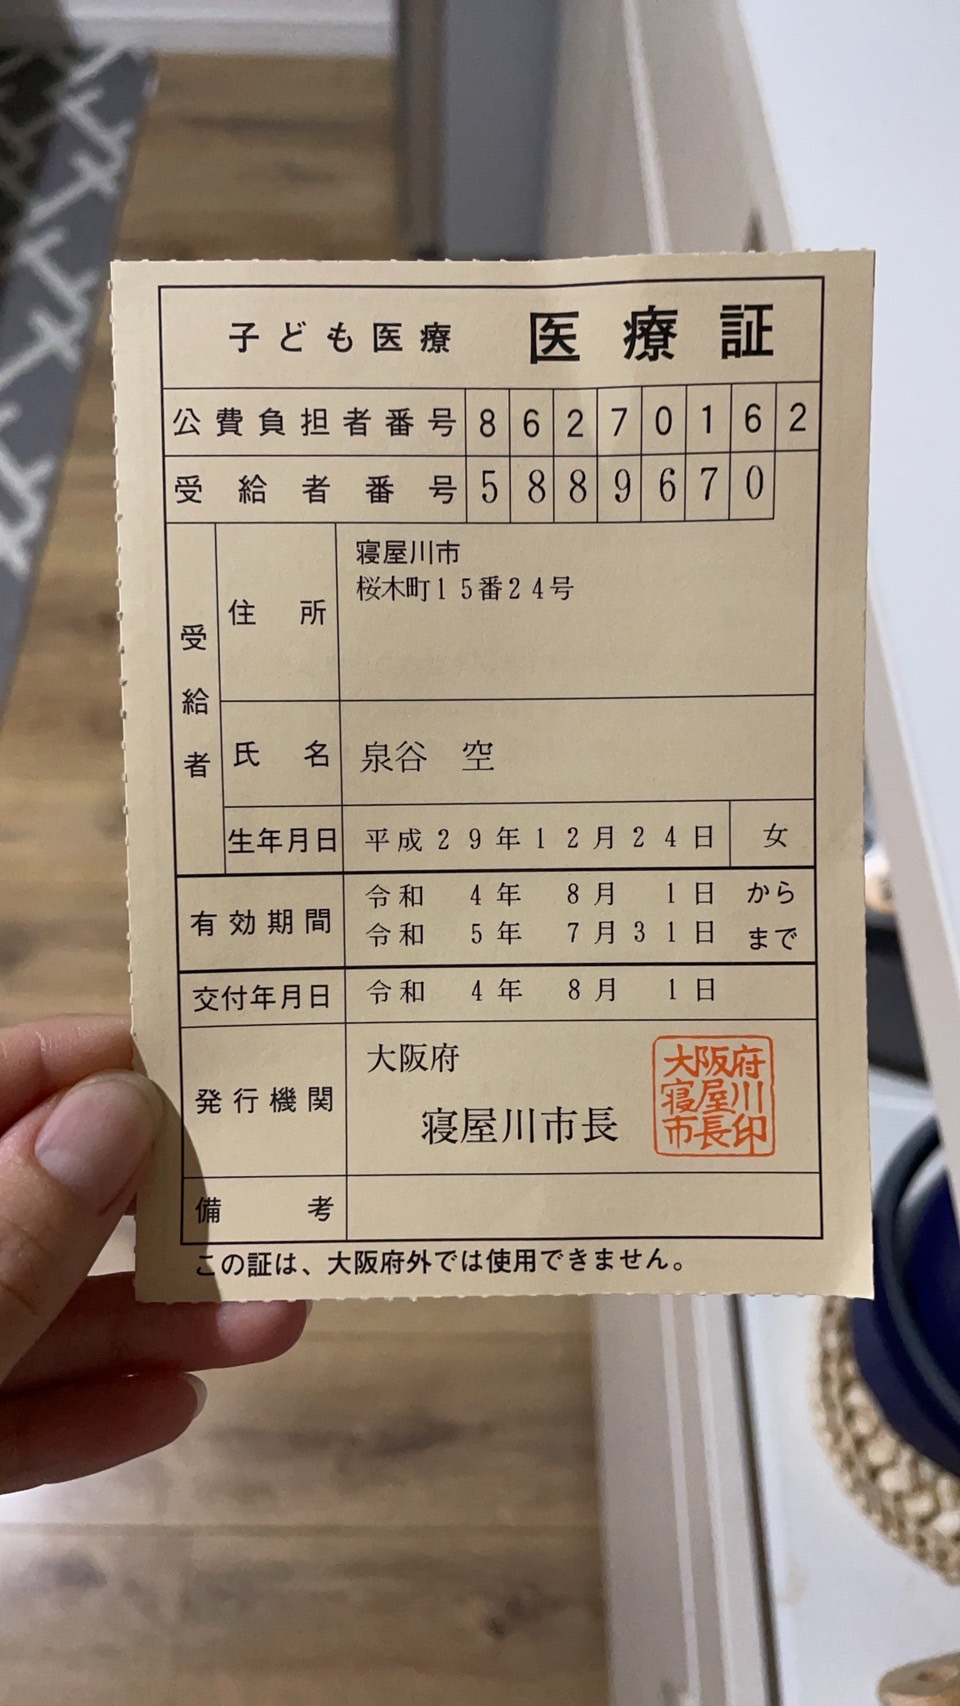 子ども医療 医療証
公費負担者番号 86270162
受給者番号 5889670
受給者
住所 寝屋川市
桜木町15番24号
氏名 泉谷 空
生年月日 平成29年12月24日 女
有効期間 令和 4年 8月 1日 から
令和 5年 7月31日 まで
交付年月日 令和 4年 8月 1日
発行機関 大阪府
寝屋川市長
大阪府
寝屋川
市長印
備考
この証は、大阪府外では使用できません。